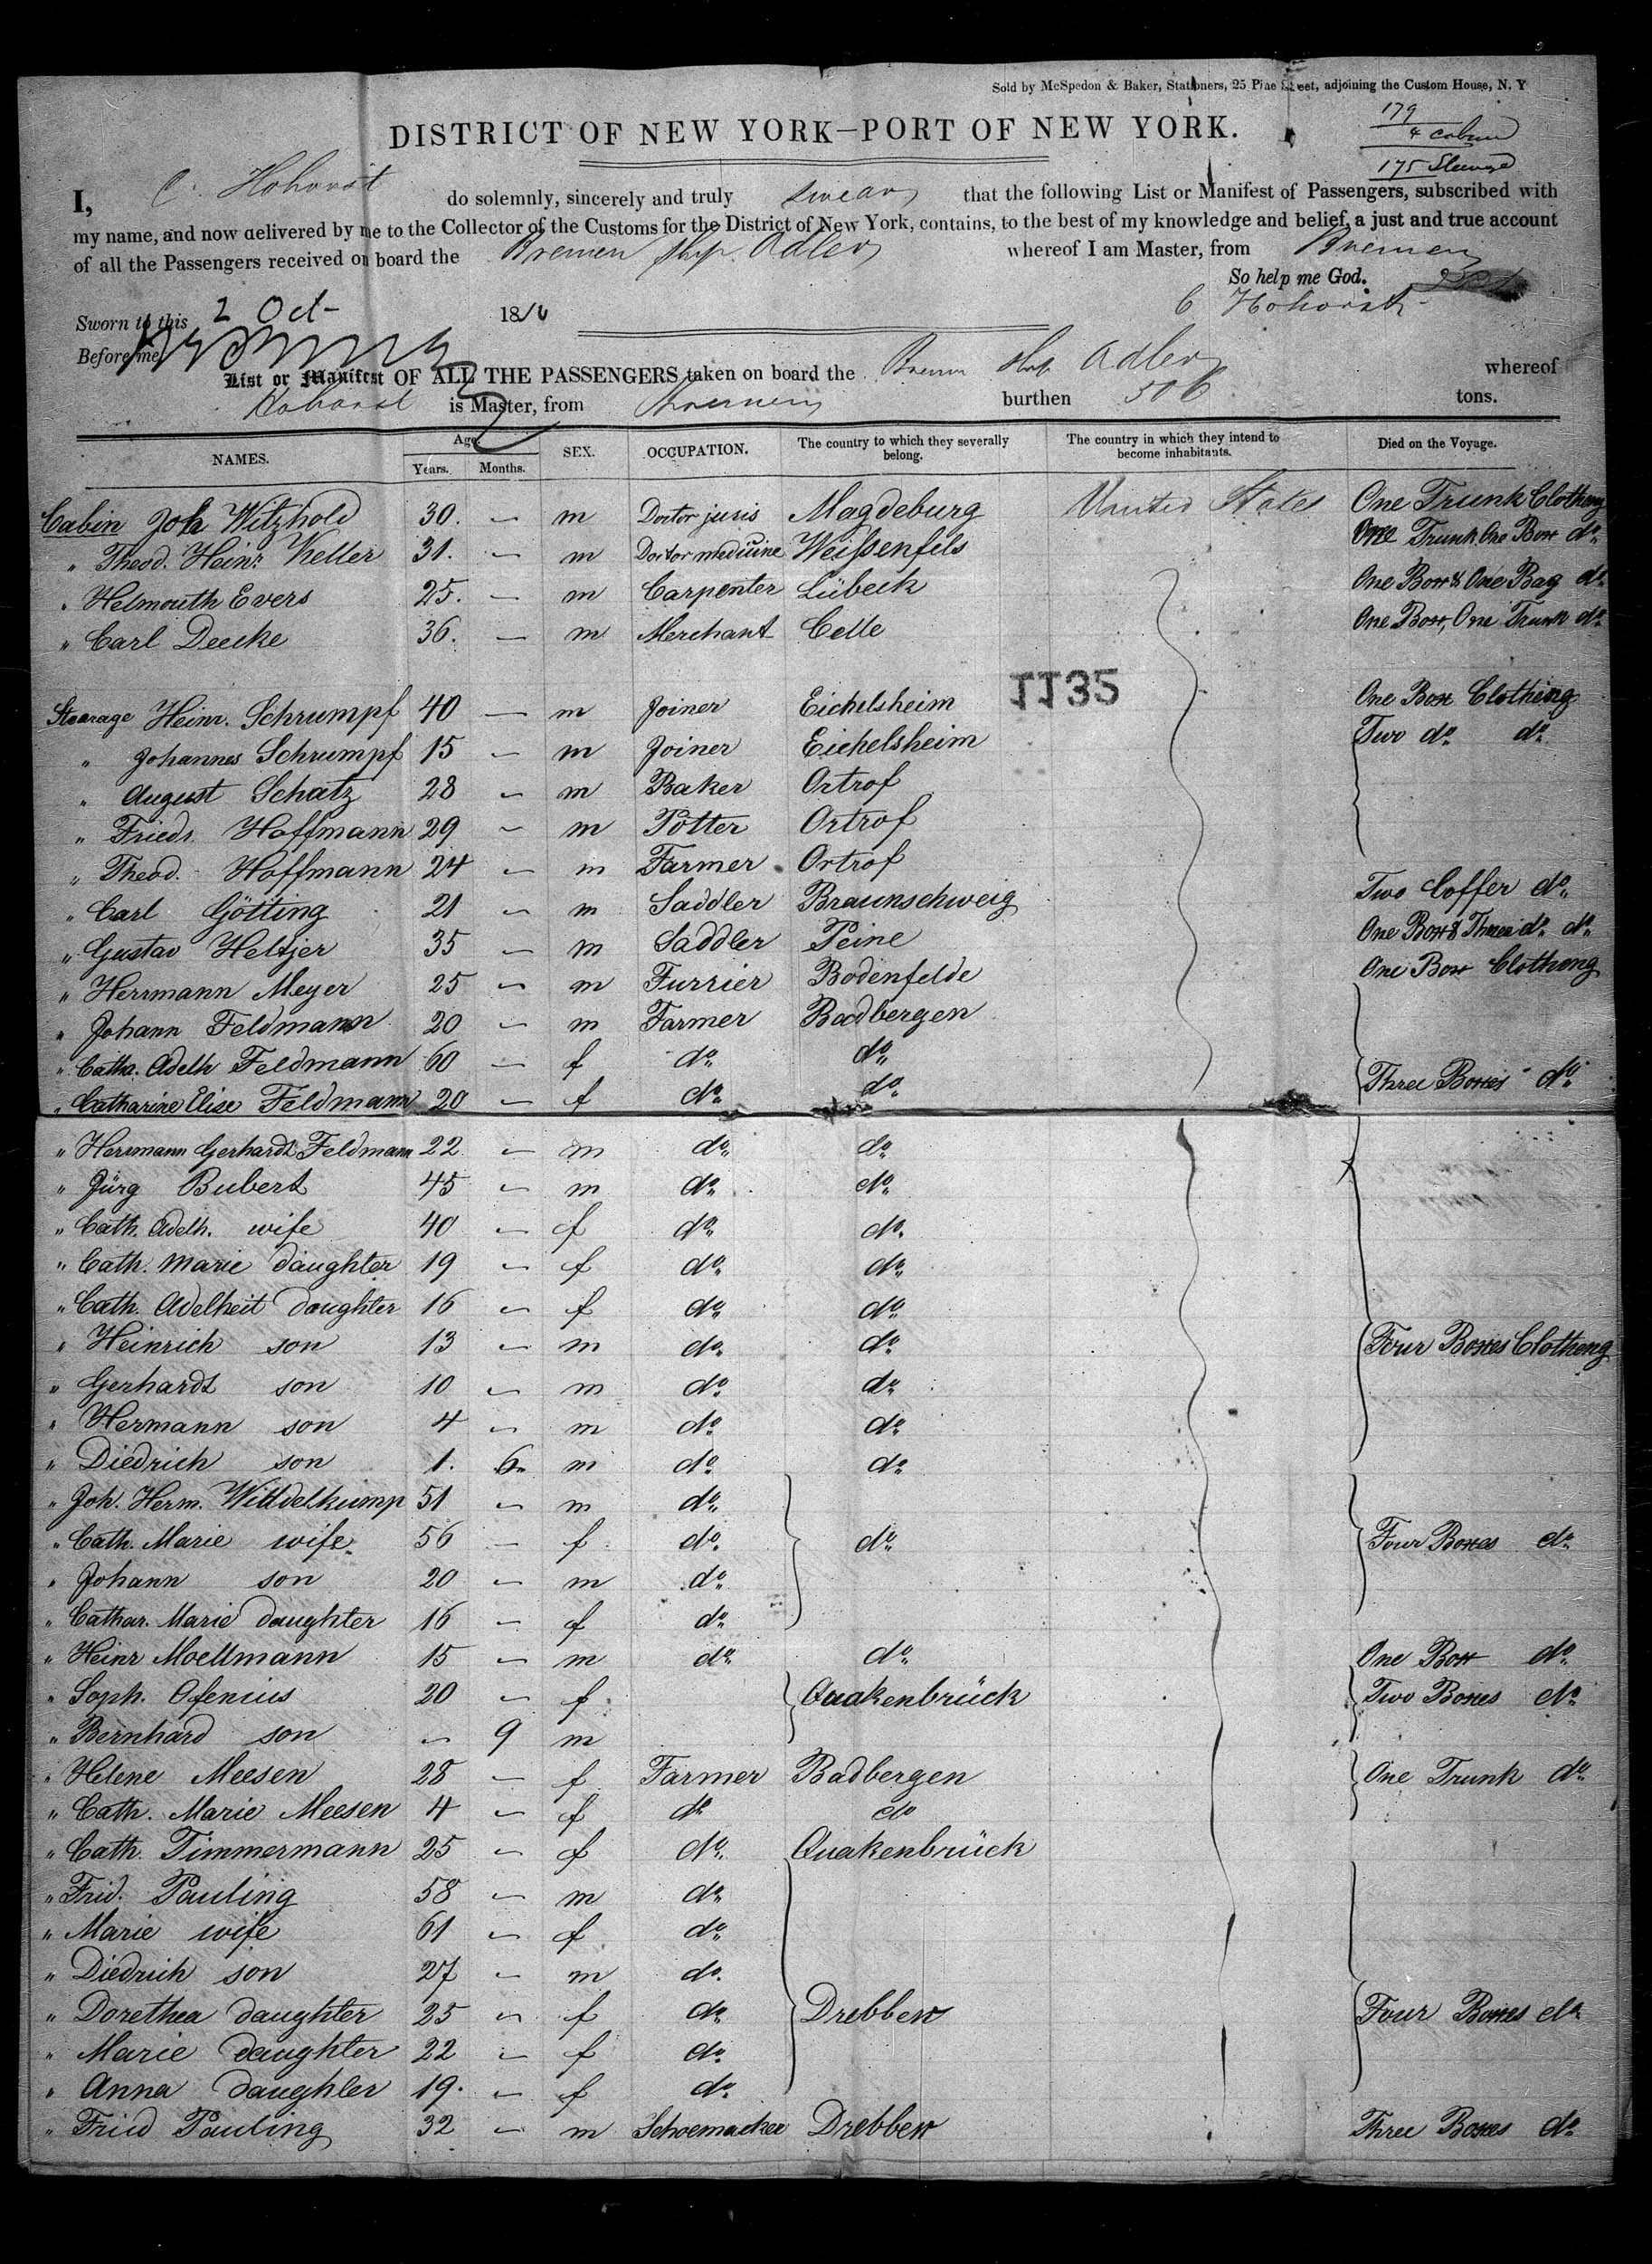 Sold by McSpedon & Baker, Stationers, 25 Pine Street, adjoining the Custom House, N. Y
179
4 cabin
175 Steerage
DISTRICT OF NEW YORK—PORT OF NEW YORK.
I, C. Hohorst do solemnly, sincerely and truly swear that the following List or Manifest of Passengers, subscribed with
my name, and now delivered by me to the Collector of the Customs for the District of New York, contains, to the best of my knowledge and belief, a just and true account
of all the Passengers received on board the Bremen ship Adler whereof I am Master, from Bremen
So help me God.
Sworn to this 2 Oct 18
C Hohorst
Before me
List or Manifest OF ALL THE PASSENGERS taken on board the Bremen Ship Adler whereof
Hohorst is Master, from Bremen burthen 506 tons.
NAMES. Age. Years. Months. SEX. OCCUPATION. The country to which they severally belong. The country in which they intend to become inhabitants. Died on the Voyage.
Cabin Joh Witzhold 30. — m Doctor juris Magdeburg United States One Trunk Clotheng
" Theod. Heinr. Keller 31. — m Doctor medicine Weissenfels One Trunk, One Box do.
" Helmouth Evers 25. — m Carpenter Lübeck One Box & One Bag do.
" Carl Deecke 36. — m Merchant Celle One Box, One Trunk do.
1135
Stearage Heinr. Schrumpf 40 — m Joiner Eichelsheim One Box Clothing
" Johannes Schrumpf 15 — m Joiner Eichelsheim Two do. do.
" August Schatz 28 — m Baker Ortrof
" Friedr. Hoffmann 29 — m Potter Ortrof
" Theod. Hoffmann 24 — m Farmer Ortrof
" Carl Götting 21 — m Saddler Braunschweig Two Coffer do.
" Gustav Heltjer 35 — m Saddler Peine One Box & Three do. do.
" Herrmann Meyer 25 — m Furrier Bodenfelde One Box Clotheng
" Johann Feldmann 20 — m Farmer Badbergen
" Catha. Adelh Feldmann 60 — f do. do.
" Catharine Elise Feldmann 20 — f do. do. Three Boxes do.
" Herrmann Gerhardt Feldmann 22 — m do. do.
" Jürg Bubert 45 — m do. do.
" Cath. Adelh. wife 40 — f do. do.
" Cath. Marie daughter 19 — f do. do.
" Cath. Adelheit daughter 16 — f do. do.
" Heinrich son 13 — m do. do. Four Boxes Clotheng
" Gerhardt son 10 — m do. do.
" Hermann son 4 — m do. do.
" Diedrich son 1. 6 m do. do.
" Joh. Herm. 51 — m do.
" Cath. Marie wife 56 — f do. do. Four Boxes do.
" Johann son 20 — m do.
" Cathar. Marie daughter 16 — f do.
" Heinr Moellmann 15 — m do. do. One Box do.
" Soph. Ofenius 20 — f Quakenbrück Two Boxes do.
" Bernhard son — 9 m
" Helene Meesen 28 — f Farmer Badbergen One Trunk do.
" Cath. Marie Meesen 4 — f do do
" Cath. Timmermann 25 — f do. Quakenbrück
" Frid. Pauling 58 — m do.
" Marie wife 61 — f do.
" Diedrich son 27 — m do.
" Dorethea daughter 25 — f do. Drebber Four Boxes do.
" Marie daughter 22 — f do.
" Anna daughter 19. — f do.
" Fried Pauling 32 — m Schoemacker Drebber Three Boxes do.